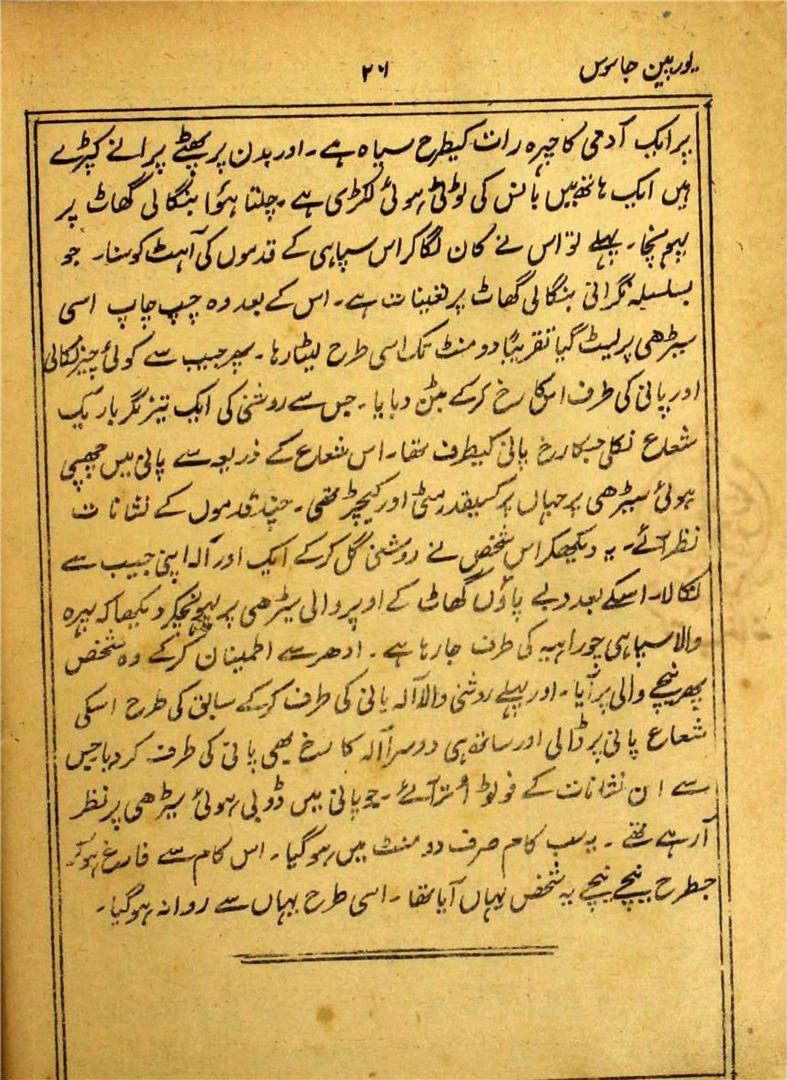 یورپین جاسوس ۲۶
پر ایک آدمی کا چہرہ رات کیطرح سیاہ ہے۔ اور بدن پر پھٹے پرانے کپڑے
ہیں ایک ہاتھ میں بانس کی ٹوٹی ہوئی لکڑی ہے۔ چلتا ہؤا بنگالی گھاٹ پر
پہونچا۔ پہلے تو اس نے کان لگا کر اس سپاہی کے قدموں کی آہٹ کو سنا۔ جو
بسلسلہ نگرانی بنگالی گھاٹ پر تعینات ہے۔ اس کے بعد وہ چپ چاپ اسی
سیڑھی پر لیٹ گیا تقریبًا دو منٹ تک اسی طرح لیٹا رہا۔ پھر جیب سے کوئی چیز نکالی
اور پانی کی طرف اس کا رخ کر کے بٹن دبایا۔ جس سے روشنی کی ایک تیز مگر باریک
شعاع نکلی جسکا رخ پانی کیطرف تھا۔ اس شعاع کے ذریعہ سے پانی میں چھپی
ہوئی سیڑھی پر جہاں پر کسیقدر مٹی اور کیچڑ تھی۔ چند قدموں کے نشانات
نظر آئے۔ یہ دیکھکر اس شخص نے روشنی گل کر کے ایک اور آلہ اپنی جیب سے
نکالا۔ اسکے بعد دبے پاؤں گھاٹ کے اوپر والی سیڑھی پر پہونچکر دیکھا کہ پہرہ
والا سپاہی چوراہیہ کی طرف جا رہا ہے۔ ادھر سے اطمینان کر کے وہ شخص
پھر نیچے والی پر آیا۔ اور پہلے روشنی والا آلہ پانی کی طرف کر کے سابق کی طرح اسکی
شعاع پانی پر ڈالی اور ساتھ ہی دوسرا آلہ کا رخ بھی پانی کی طرف کر دیا جس
سے ان نشانات کے فوٹو اتر آئے۔ جو پانی میں ڈوبی ہوئی سیڑھی پر نظر
آ رہے تھے۔ یہ سب کام صرف دو منٹ میں ہو گیا۔ اس کام سے فارغ ہو کر
جطرح نیچے نیچے یہ شخص یہاں آیا تھا۔ اسی طرح یہاں سے روانہ ہو گیا۔